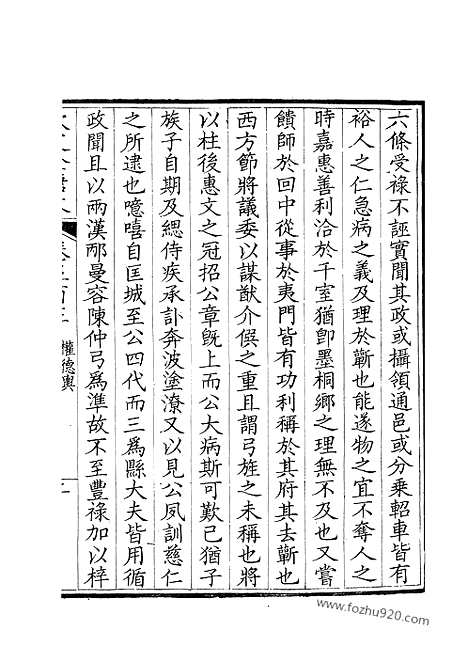 六條受祿不誣實聞其政或攝領通邑或分乗軺車皆有
裕人之仁急病之義及理於蘄也能遂物之宜不奪人之
時嘉惠善利洽於千室猶卽墨桐鄉之理無不及也又嘗
饋師於回中從事於夷門皆有功利稱於其府其去蘄也
西方節將議委以謀猷介倅之重且謂弓旌之未稱也將
以柱後惠文之冠招公章旣上而公大病斯可歎已猶子
族子自期及緦侍疾承訃奔波塗潦又以見公夙訓慈仁
之所逮也噫嘻自匡城至公四代而三爲縣大夫皆用循
政聞且以兩漢邴曼容陳仲弓爲準故不至豐祿加以梓
權德輿
www.fozhu920.com